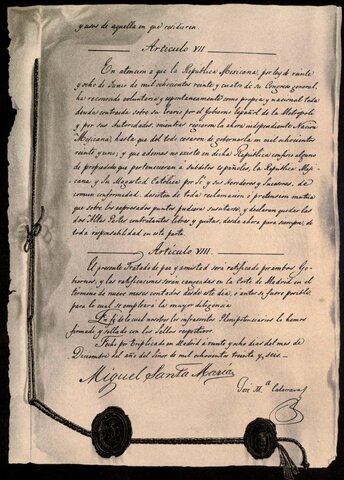 y usos de aquella en que residieren.
Artículo VII
En atencion a que la República Mexicana, por ley de veinte
y ocho de Junio de mil ochocientos veinte y cuatro de su Congreso general,
ha reconocido voluntaria y espontaneamente como propia y nacional toda
deuda contraida sobre su Erario por el Gobierno Español de la Metropoli
y por sus Autoridades, mientras rigieron la ahora independiente Nacion
Mexicana, hasta que del todo cesaron de gobernarla en mil ochocientos
veinte y uno; y que ademas no existe en dicha República confisco alguno
de propiedades que pertenecieran a subditos españoles, la República Mejicana,
y Su Magestad Católica por Sí y sus Herederos y Sucesores, de
comun conformidad desisten de toda reclamacion o pretension mutua
que sobre los expresados puntos pudiera suscitarse, y declaran quedar las
dos Altas Partes contratantes libres y quitas, desde ahora para siempre, de
toda responsabilidad en esta parte.
Artículo VIII
El presente Tratado de paz y amistad será ratificado por ambos Gobiernos,
y las ratificaciones serán cangeadas en la Corte de Madrid en el
termino de nueve meses contados desde este dia, o antes si fuere posible,
para lo cual se empleará la mayor diligencia.
En fé de lo cual nosotros los infrascritos Plenipotenciarios lo hemos
firmado y sellado con los Sellos respectivos.
Fecho por triplicado en Madrid a veinte y ocho dias del mes de
Diciembre del año del Señor de mil ochocientos treinta y seis.
Miguel Santa María
José M.ª Calatrava